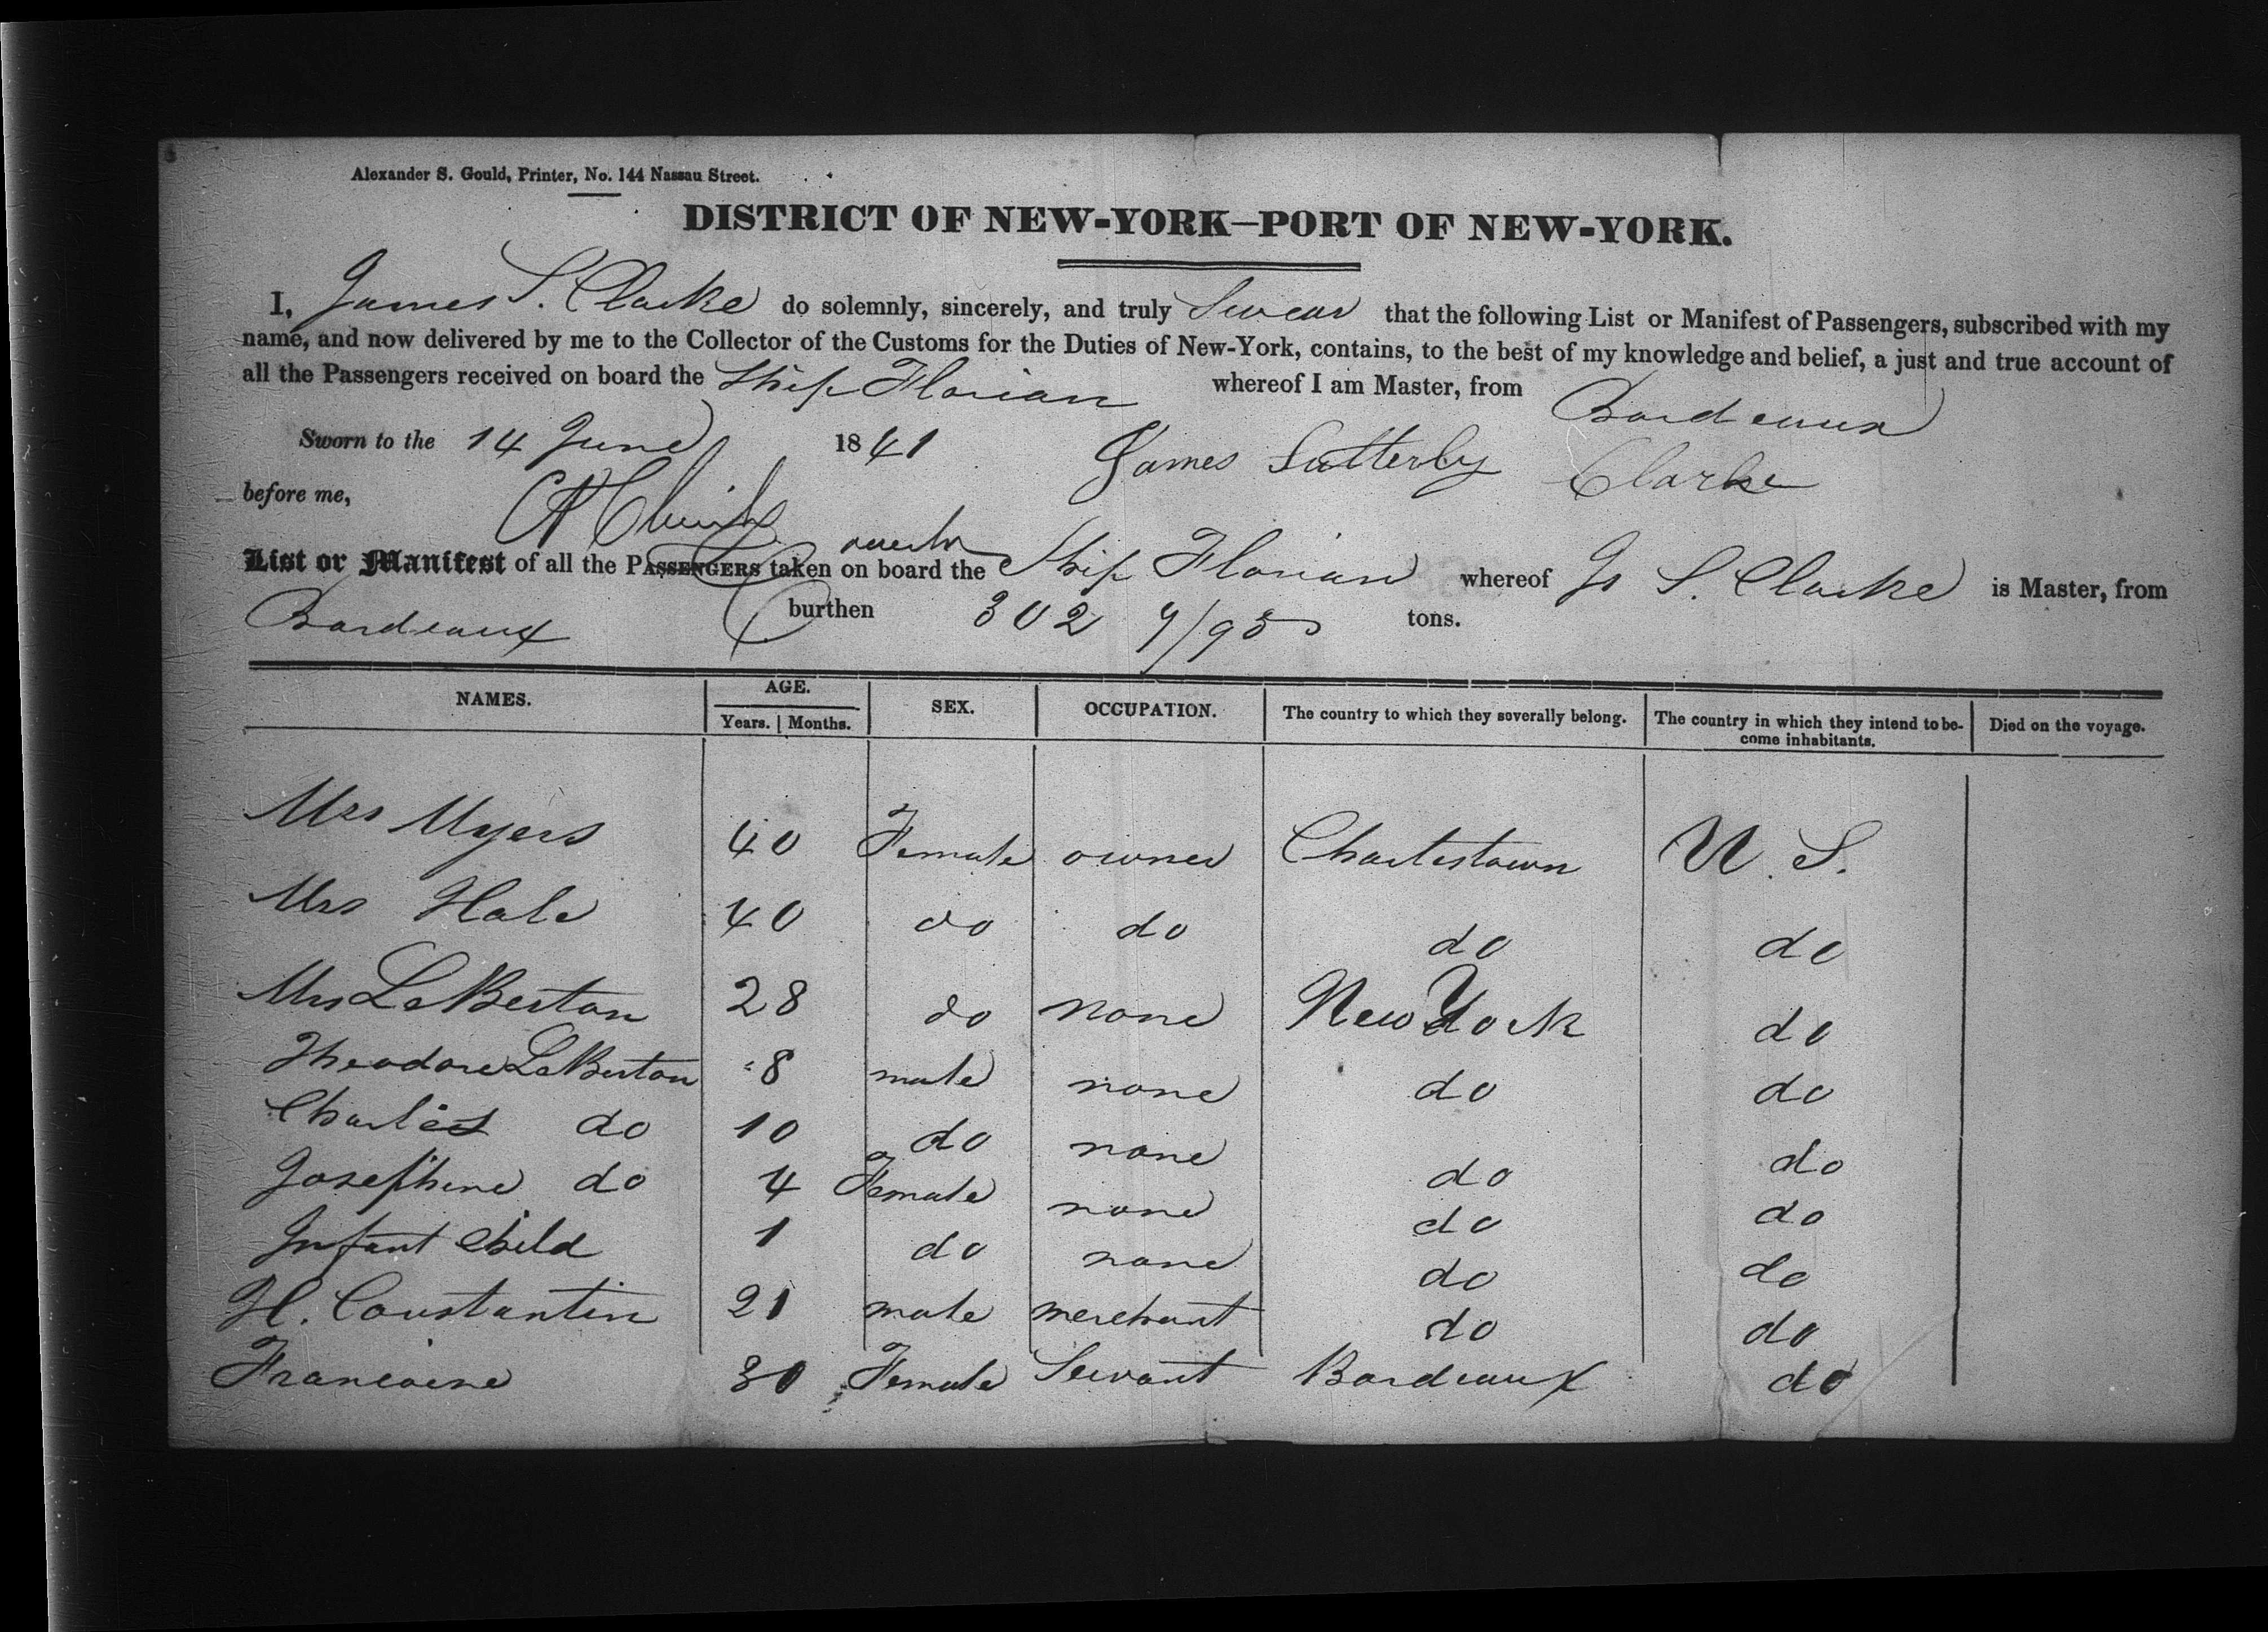 Alexander S. Gould, Printer, No. 144 Nassau Street.
DISTRICT OF NEW-YORK—PORT OF NEW-YORK.
I, James S. Clarke do solemnly, sincerely, and truly Swear that the following List or Manifest of Passengers, subscribed with my
name, and now delivered by me to the Collector of the Customs for the Duties of New-York, contains, to the best of my knowledge and belief, a just and true account of
all the Passengers received on board the Ship Florian whereof I am Master, from Bordeaux
Sworn to the 14 June 1841 James Satterly Clarke
before me,
List or Manifest of all the PASSENGERS taken on board the Ship Florian whereof Js S. Clarke is Master, from
Bordeaux burthen 302 9/95 tons.
NAMES. AGE. SEX. OCCUPATION. The country to which they severally belong. The country in which they intend to be-
come inhabitants. Died on the voyage.
Years. Months.
Mrs Myers 40 Female owner Charlestown U. S.
Mrs Hale 40 do do do do
Mrs LeBerton 28 do none New York do
Theodore LeBerton 8 male none do do
Charles do 10 do none do do
Josephine do 4 Female none do do
Infant Child 1 do none do do
H. Constantin 21 male merchant do do
Francoise 30 Female Servant Bordeaux do